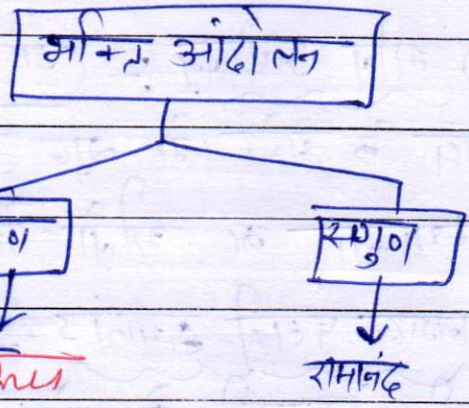 भक्ति आंदोलन
ण सगुण
रामानंद